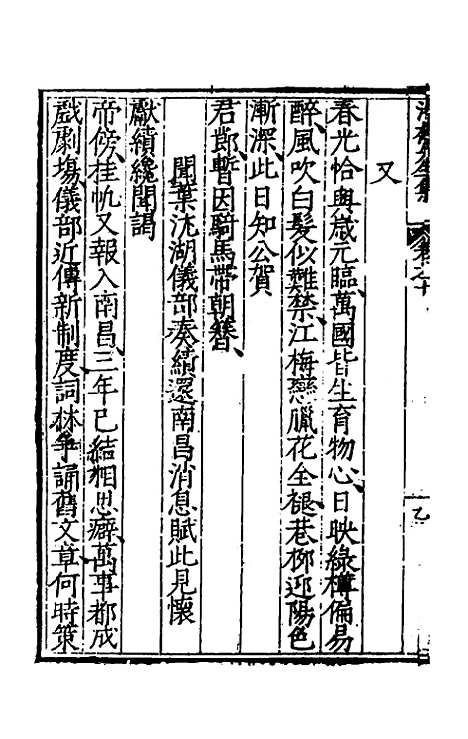 全集 卷之十 乙
又
春光恰與歲元臨萬國皆生育物心日映綠樽偏易
醉風吹白髮似難禁江梅戀臘花全褪巷柳迎陽色
漸深此日知公賀
君暫因騎馬帶朝簪
聞葉沈湖儀部奏績還南昌消息賦此見懷
獻績纔聞謁
帝傍挂帆又報入南昌三年已結相思癖萬事都成
戲劇場儀部近傳新制度詞林爭誦舊文章何時策